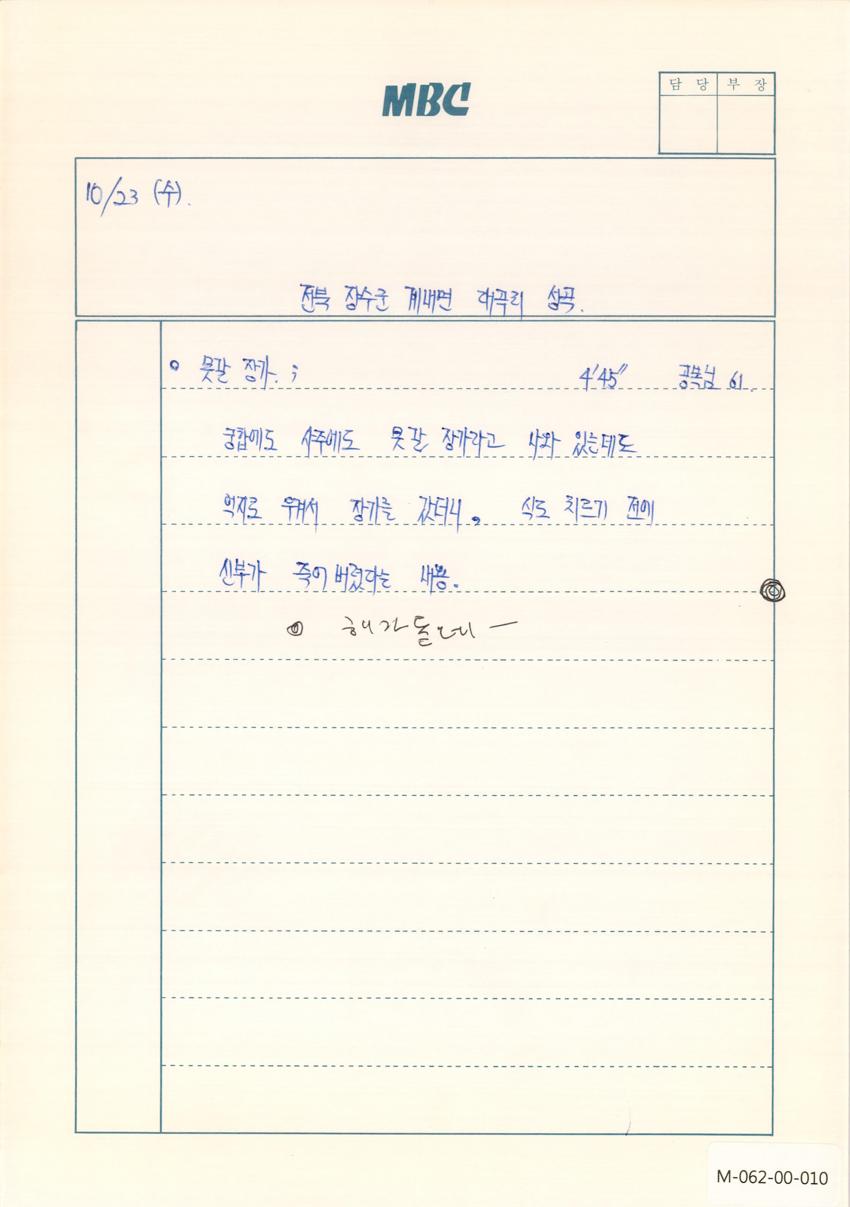 MBC
담 당 부 장
10/23 (수).
전북 장수군 계내면 대곡리 성곡.
못갈 장가. ; 4'45" 공복님 61.
궁합에도 사주에도 못갈 장가라고 나와 있는데도
억지로 우겨서 장가를 갔더니, 식도 치르기 전에
신부가 죽어버렸다는 내용.
해가돋네 —
M-062-00-010